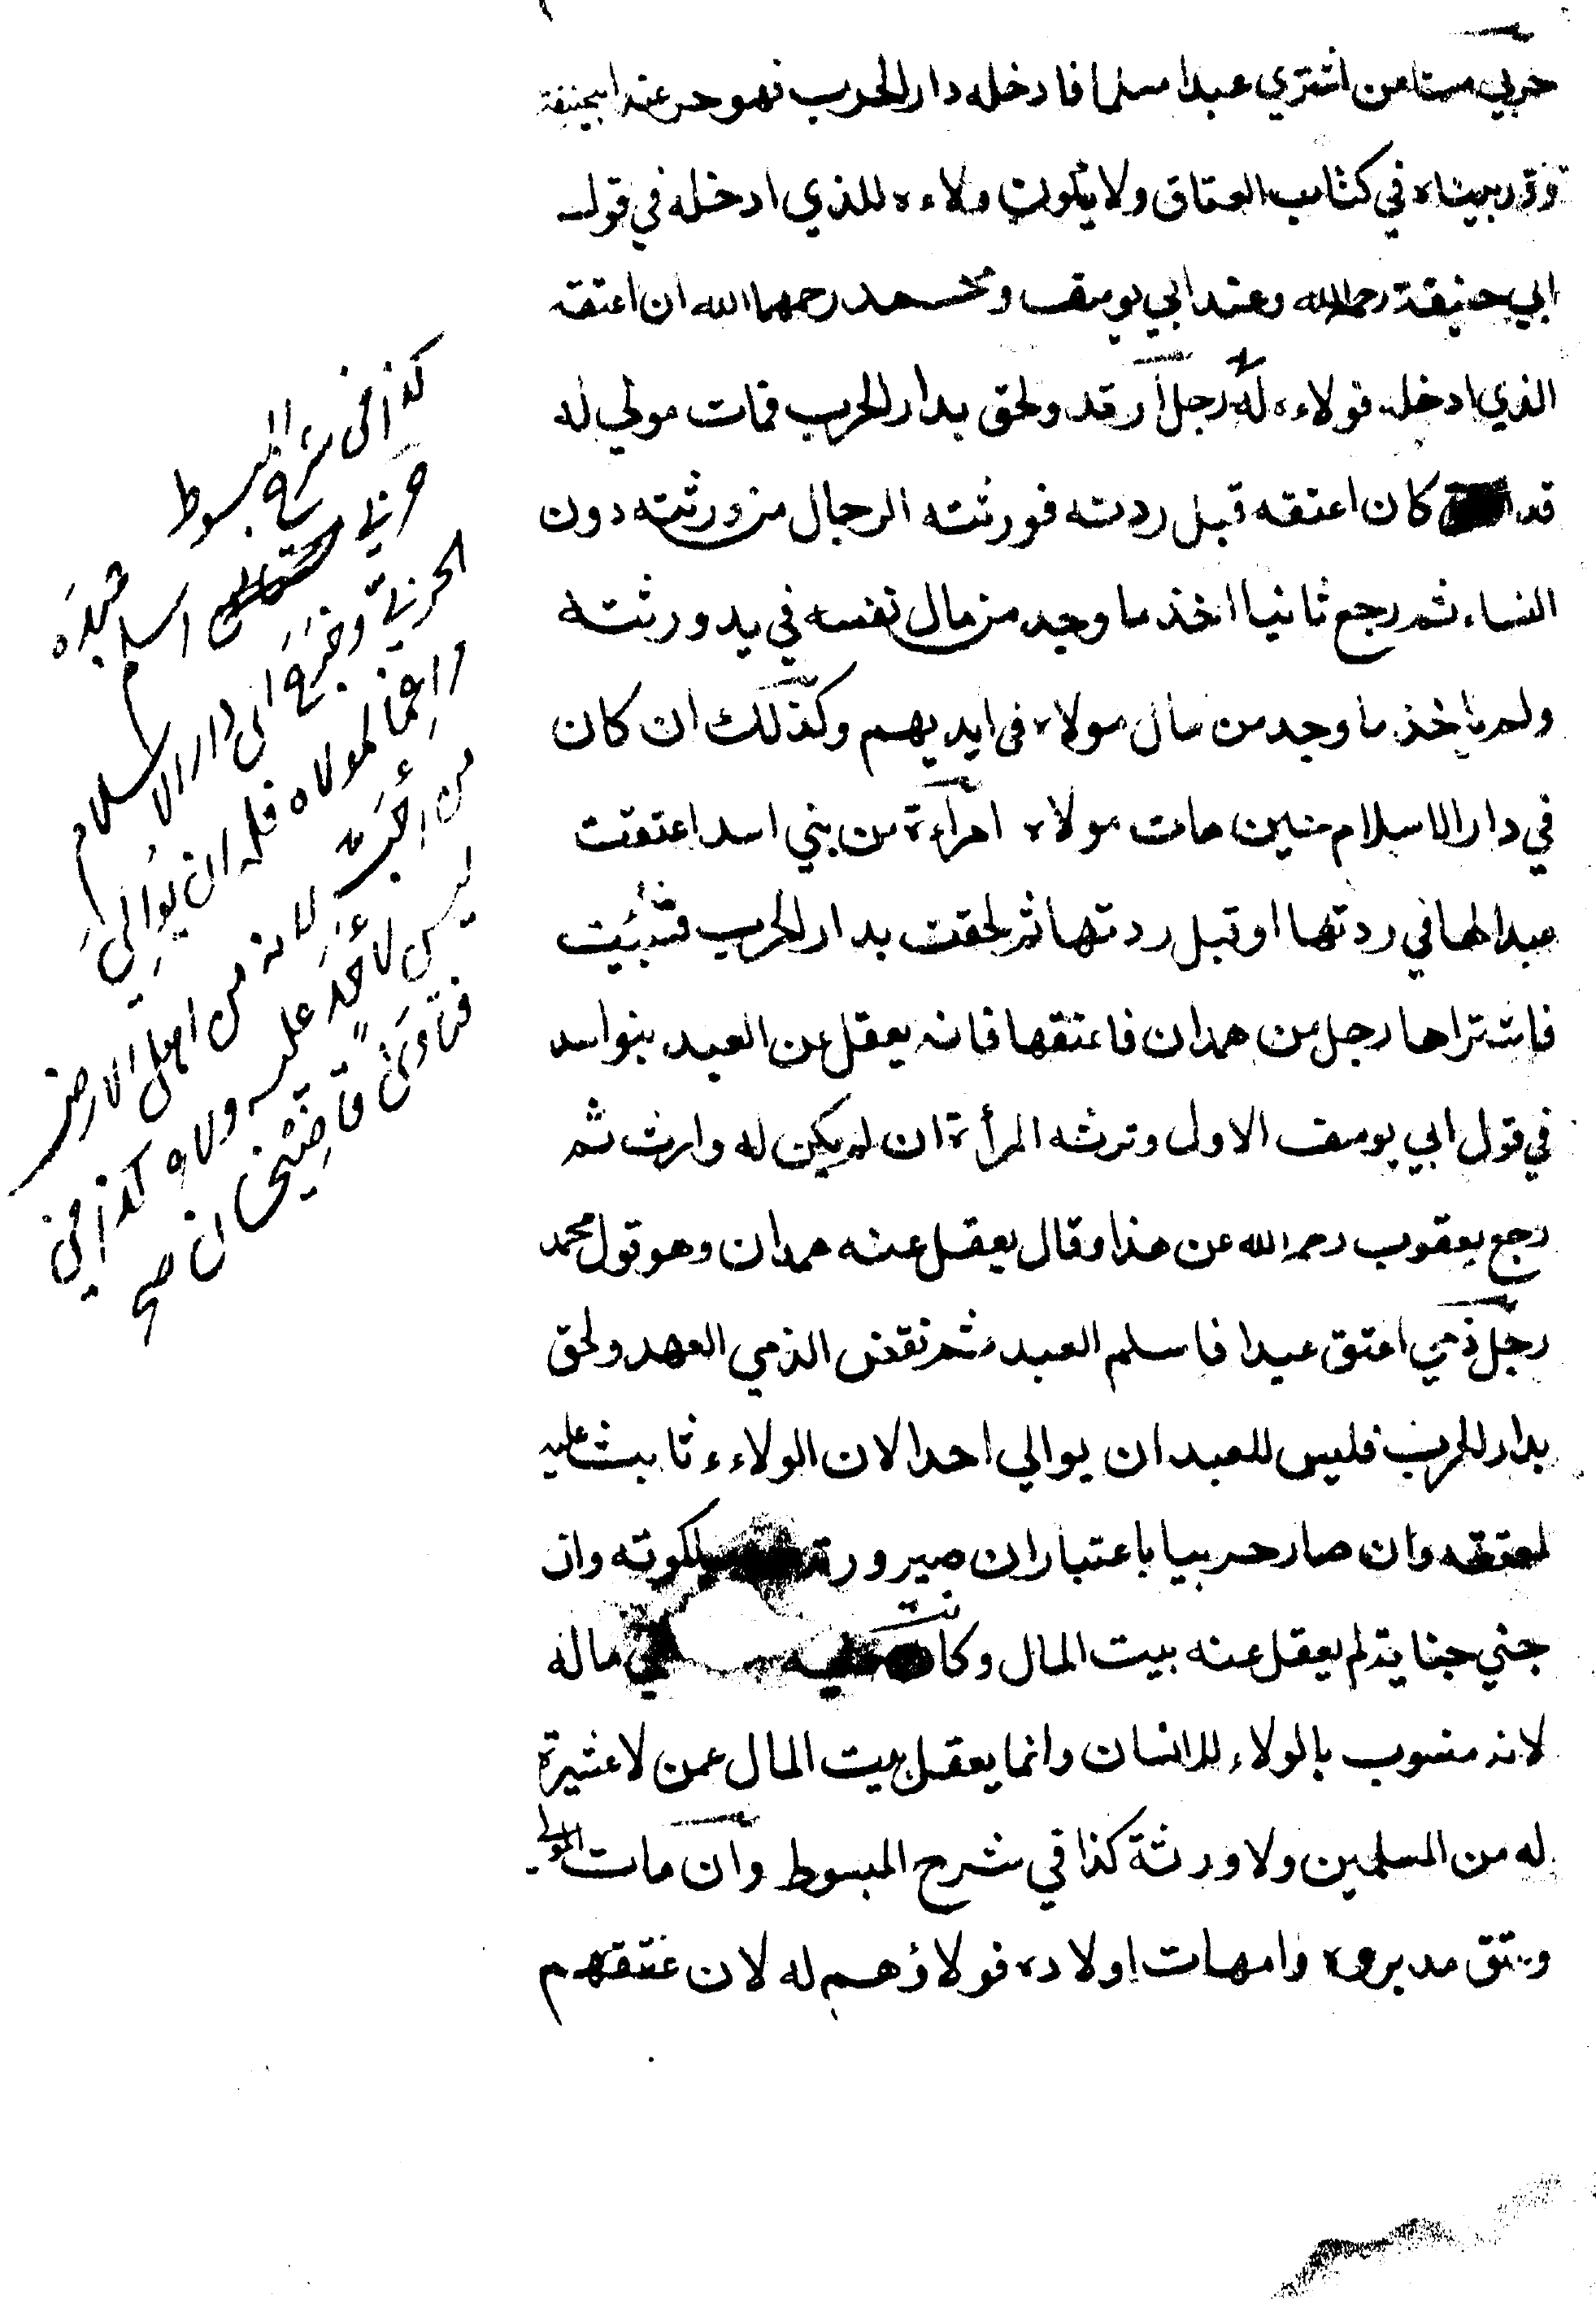 حربي مستامن اشتري عبدا مسلما فادخله دار الحرب فهو حر عند ابيحنيفة
وقد بيناه في كتاب العتاق ولا يكون ولاءه للذي ادخله في قول
ابي حنيفة رحمه الله وعند ابي يوسف ومحمد رحمهما الله ان اعتقه
الذي ادخله فولاءه له رجل ارتد ولحق بدار الحرب فمات مولي له
قد كان اعتقه قبل ردته فورثته الرجال من ورثته دون
النساء ثم رجع ثانيا اخذ ما وجد من مال نفسه في يد ورثته
ولم ياخذ ما وجد من مال مولاه في ايديهم وكذلك ان كان
في دار الاسلام حين مات مولاه امراءة من بني اسد اعتقت
عبدا لها في ردتها او قبل ردتها ثم لحقت بدار الحرب فسبيت
فاشتراها رجل من همدان فاعتقها فانه يعقل عن العبد بنو اسد
في قول ابي يوسف الاول وترثه المرأة ان لم يكن له وارث ثم
رجع يعقوب رحمه الله عن هذا وقال يعقل عنه همدان وهو قول محمد
رجل ذمي اعتق عبدا فاسلم العبد ثم نقض الذمي العهد ولحق
بدار الحرب فليس للعبد ان يوالي احدا لان الولاء ثابت عليه
لمعتقه وان صار حربيا باعتبار ان صيرورته كموته وان
جني جناية لم يعقل عنه بيت المال وكانت عليه في ماله
لانه منسوب بالولاء للانسان وانما يعقل بيت المال عمن لا عشيرة
له من المسلمين ولا ورثة كذا في شرح المبسوط وان مات المولي
ويعتق مدبروه وامهات اولاده فولاؤهم له لان عتقهم
كذا في شرح المبسوط
حربي اسلم عبده
الحربي وخرج الى دار الاسلام
مراغما لمولاه فله ان يوالي
من احب لانه من اهل الارض
ليس لاحد عليه ولاء كذا في
فتاوى قاضيخان صح